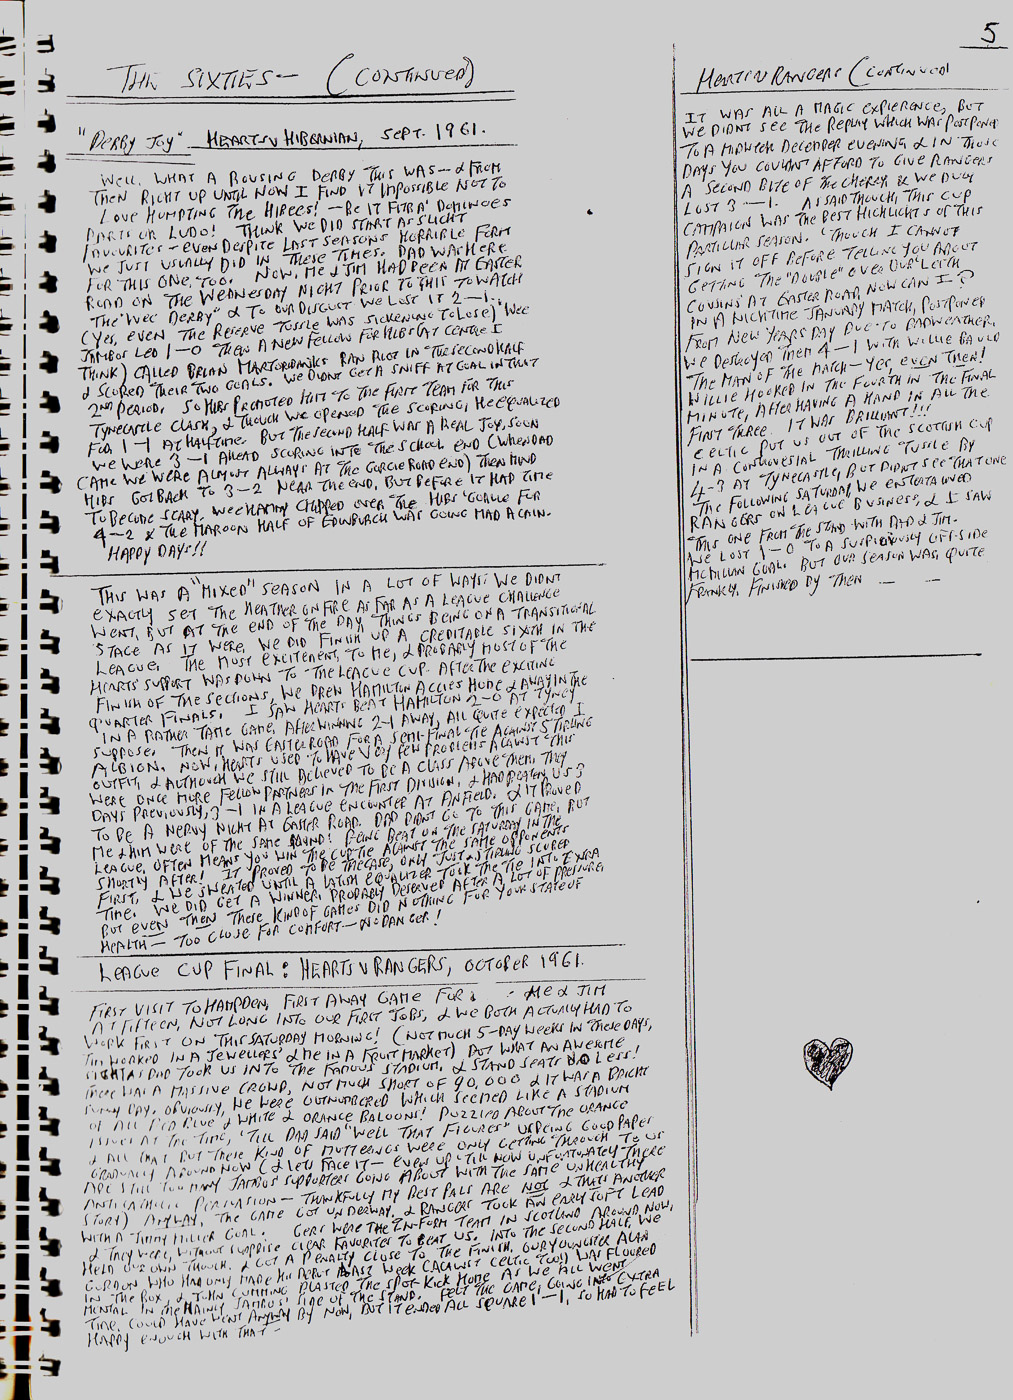 5
THE SIXTIES — (CONTINUED)
"DERBY JOY" HEARTS V HIBERNIAN, SEPT. 1961.
WELL, WHAT A ROUSING DERBY THIS WAS — & FROM
THEN RIGHT UP UNTIL NOW I FIND IT IMPOSSIBLE NOT TO
LOVE HUMPING THE HIBEES! — BE IT FITBA' DOMINOES
DARTS OR LUDO! THINK WE DID START AS SLIGHT
FAVOURITES — EVEN DESPITE LAST SEASONS HORRIBLE FORM
WE JUST USUALLY DID IN THESE TIMES. DAD WAS HERE
FOR THIS ONE, TOO. NOW, ME & JIM HAD BEEN AT EASTER
ROAD ON THE WEDNESDAY NIGHT PRIOR TO THIS TO WATCH
THE "WEE DERBY" & TO OUR DISGUST WE LOST IT 2—1..
(YES, EVEN THE RESERVE TUSSLE WAS SICKENING TO LOSE) WEE
JAMBOS LED 1—0 THEN A NEW FELLOW FOR HIBS (AT CENTRE I
THINK) CALLED BRIAN MARJORIBANKS RAN RIOT IN THE SECOND HALF
& SCORED THEIR TWO GOALS. WE DIDNT GET A SNIFF AT GOAL IN THAT
2ND PERIOD. SO HIBS PROMOTED HIM TO THE FIRST TEAM FOR THIS
TYNECASTLE CLASH, & THOUGH WE OPENED THE SCORING, HE EQUALIZED
FOR 1—1 AT HALFTIME. BUT THE SECOND HALF WAS A REAL JOY, SOON
WE WERE 3—1 AHEAD SCORING INTO THE SCHOOL END (WHEN DAD
CAME WE WERE ALMOST ALWAYS AT THE GORGIE ROAD END) THEN MIND
HIBS GOT BACK TO 3—2 NEAR THE END, BUT BEFORE IT HAD TIME
TO BECOME SCARY. WEE HAMMY CHIPPED OVER THE HIBS' GOALIE FOR
4—2 & THE MAROON HALF OF EDINBURGH WAS GOING MAD AGAIN.
HAPPY DAYS!!
THIS WAS A "MIXED" SEASON IN A LOT OF WAYS: WE DIDNT
EXACTLY SET THE HEATHER ON FIRE AS FAR AS A LEAGUE CHALLENGE
WENT, BUT AT THE END OF THE DAY, THINGS BEING ON A TRANSITIONAL
STAGE AS IT WERE, WE DID FINISH UP A CREDITABLE SIXTH IN THE
LEAGUE. THE MOST EXCITEMENT, TO ME, & PROBABLY MOST OF THE
HEARTS' SUPPORT WAS DOWN TO THE LEAGUE CUP. AFTER THE EXCITING
FINISH OF THE SECTIONS, WE DREW HAMILTON ACCIES HOME & AWAY IN THE
QUARTER FINALS. I SAW HEARTS BEAT HAMILTON 2—0 AT TYNEY
IN A RATHER TAME GAME, AFTER WINNING 2—1 AWAY, ALL QUITE EXPECTED I
SUPPOSE. THEN IT WAS EASTER ROAD FOR A SEMI-FINAL TIE AGAINST STIRLING
ALBION. NOW, HEARTS USED TO HAVE VERY FEW PROBLEMS AGAINST THIS
OUTFIT, & ALTHOUGH WE STILL BELIEVED TO BE A CLASS ABOVE THEM, THEY
WERE ONCE MORE FELLOW PARTNERS IN THE FIRST DIVISION, & HAD BEATEN US 3
DAYS PREVIOUSLY, 3—1 IN A LEAGUE ENCOUNTER AT ANFIELD. & IT PROVED
TO BE A NERVY NIGHT AT EASTER ROAD. DAD DIDNT GO TO THIS GAME, BUT
ME & HIM WERE OF THE SAME MIND! BEING BEAT ON THE SATURDAY IN THE
LEAGUE, OFTEN MEANS YOU WIN THE CUP TIE AGAINST THE SAME OPPONENTS
SHORTLY AFTER! IT PROVED TO BE THE CASE, ONLY JUST & STIRLING SCORED
FIRST, & WE SWEATED UNTIL A LATISH EQUALIZER TOOK THE TIE INTO EXTRA
TIME. WE DID GET A WINNER, PROBABLY DESERVED AFTER A LOT OF PRESSURE,
BUT EVEN THEN THESE KIND OF GAMES DID NOTHING FOR YOUR STATE OF
HEALTH — TOO CLOSE FOR COMFORT — NO DANGER!
LEAGUE CUP FINAL: HEARTS V RANGERS, OCTOBER 1961.
FIRST VISIT TO HAMPDEN, FIRST AWAY GAME FOR ME & JIM
AT FIFTEEN, NOT LONG INTO OUR FIRST JOBS, & WE BOTH ACTUALLY HAD TO
WORK FIRST ON THIS SATURDAY MORNING! (NOT MUCH 5-DAY WEEKS IN THESE DAYS,
JIM WORKED IN A JEWELLERS' & ME IN A FRUIT MARKET) BUT WHAT AN AWESOME
SIGHT AS DAD TOOK US INTO THE FAMOUS STADIUM, & STAND SEATS NO LESS!
THERE WAS A MASSIVE CROWD, NOT MUCH SHORT OF 90,000 & IT WAS A BRIGHT
SUNNY DAY. OBVIOUSLY, WE WERE OUTNUMBERED WHICH SEEMED LIKE A STADIUM
OF ALL RED BLUE & WHITE & ORANGE BALOONS! PUZZLED ABOUT THE ORANGE
ISSUES AT THE TIME, 'TILL DAD SAID "WELL THAT FIGURES" US BEING GOOD PAPES
& ALL THAT BUT THESE KIND OF MUTTERINGS WERE ONLY GETTING THROUGH TO US
GRADUALLY AROUND NOW (& LETS FACE IT — EVEN UP 'TILL NOW UNFORTUNATELY THERE
ARE STILL TOO MANY JAMBOS SUPPORTERS GOING ABOUT WITH THE SAME UNHEALTHY
ANTI-CATHOLIC PERSUASION — THANKFULLY MY BEST PALS ARE NOT & THATS ANOTHER
STORY) ANYWAY, THE GAME GOT UNDERWAY, & RANGERS TOOK AN EARLY SOFT LEAD
WITH A JIMMY MILLER GOAL. GERS WERE THE IN-FORM TEAM IN SCOTLAND AROUND NOW,
& THEY WERE, WITHOUT SURPRISE CLEAR FAVORITES TO BEAT US. INTO THE SECOND HALF, WE
HELD OUR OWN THOUGH, & GOT A PENALTY CLOSE TO THE FINISH. OUR YOUNGSTER ALAN
GORDON WHO HAD ONLY MADE HIS DEBUT LAST WEEK (AGAINST CELTIC TOO) WAS FLOORED
IN THE BOX, & JOHN CUMMING BLASTED THE SPOT-KICK HOME AS WE ALL WENT
MENTAL IN THE MAINLY JAMBOS' SIDE OF THE STAND. FELT THE GAME, GOING INTO EXTRA
TIME, COULD HAVE WENT ANYWAY BY NOW, BUT IT ENDED ALL SQUARE 1—1, SO HAD TO FEEL
HAPPY ENOUGH WITH THAT —
HEARTS V RANGERS (CONTINUED)
IT WAS ALL A MAGIC EXPIERENCE, BUT
WE DIDNT SEE THE REPLAY WHICH WAS POSTPONED
TO A MIDWEEK DECEMBER EVENING, & IN THOSE
DAYS YOU COULDNT AFFORD TO GIVE RANGERS
A SECOND BITE OF THE CHERRY & WE DULY
LOST 3—1. AS SAID THOUGH, THIS CUP
CAMPAIGN WAS THE BEST HIGHLIGHTS OF THIS
PARTICULAR SEASON. THOUGH I CANNOT
SIGN IT OFF BEFORE TELLING YOU ABOUT
GETTING THE "DOUBLE" OVER OUR LEITH
COUSINS AT EASTER ROAD, NOW CAN I?
IN A NIGHTIME JANUARY MATCH, POSTPONED
FROM NEW YEARS DAY DUE TO BAD WEATHER,
WE DESTROYED THEM 4—1 WITH WILLIE BAULD
THE MAN OF THE MATCH — YES, EVEN THEN!
WILLIE HOOKED IN THE FOURTH IN THE FINAL
MINUTE, AFTER HAVING A HAND IN ALL THE
FIRST THREE. IT WAS BRILLIANT!!!
CELTIC PUT US OUT OF THE SCOTTISH CUP
IN A CONTROVESIAL THRILLING TUSSLE BY
4—3 AT TYNECASTLE, BUT DIDNT SEE THAT ONE
THE FOLLOWING SATURDAY, WE ENTERTAINED
RANGERS ON LEAGUE BUSINESS, & I SAW
THIS ONE FROM THE STAND WITH DAD & JIM.
WE LOST 1—0 TO A SUSPICIOUSLY OFF-SIDE
MCMILLAN GOAL. BUT OUR SEASON WAS, QUITE
FRANKLY, FINISHED BY THEN — —